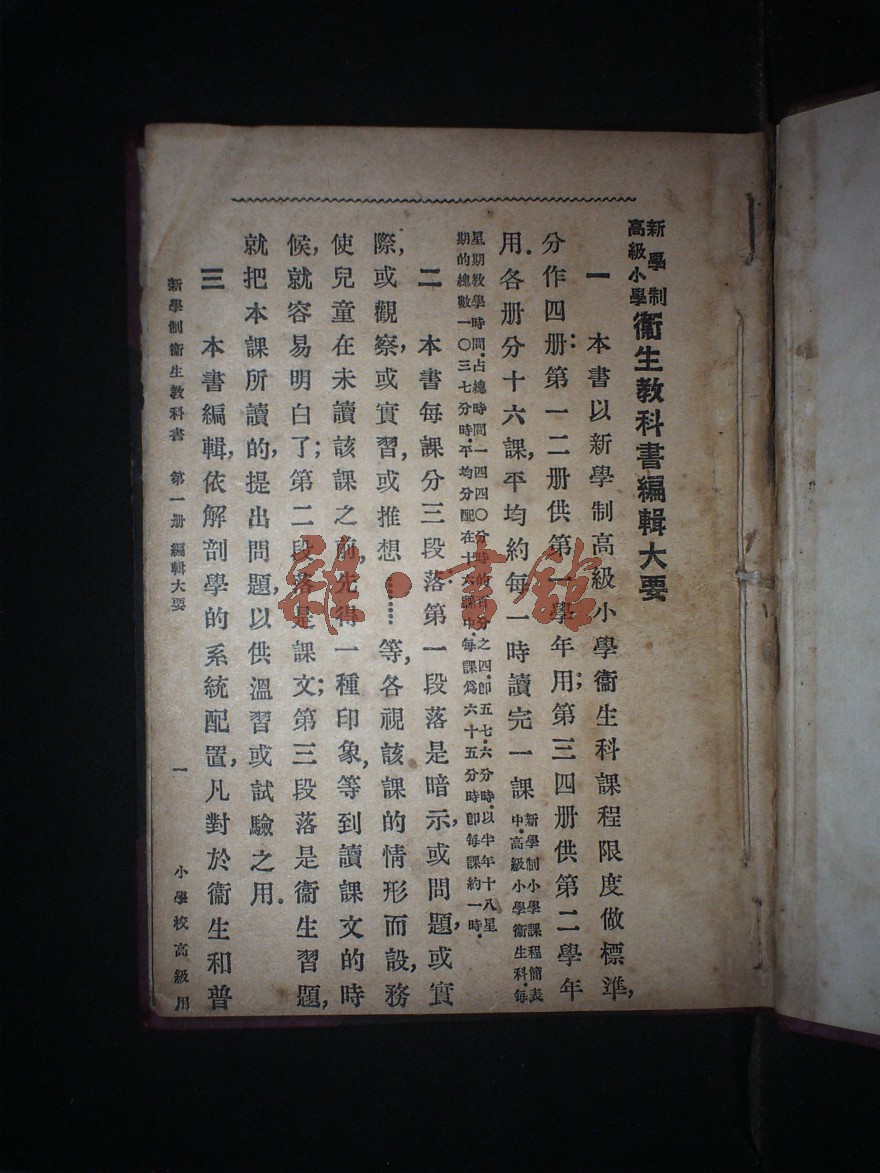 新學制
高級小學
衞生教科書編輯大要
一 本書以新學制高級小學衞生科課程限度做標準,
分作四册:第一二册供第一學年用;第三四册供第二學年
用.各册分十六課,平均約每一時讀完一課
新學制小學課程簡表
中.高級小學衞生科.每
星期教學時間.占總時間一四四〇分時的百分之四.卽五七·六分時.以半年十八星
期的總數一〇三七分時.平均分配在十六課中.每課爲六十五分時卽每課約一時.
二 本書每課分三段落:第一段落是暗示,或問題,或實
際,或觀察,或實習,或推想……等,各視該課的情形而設,務
使兒童在未讀該課之前,先得一種印象,等到讀課文的時
候,就容易明白了;第二段落是課文;第三段落是衞生習題,
就把本課所讀的,提出問題,以供溫習或試驗之用.
三 本書編輯,依解剖學的系統配置,凡對於衞生和普
新學制衞生教科書 第一册 編輯大要 一 小學校高級用
雜·書館